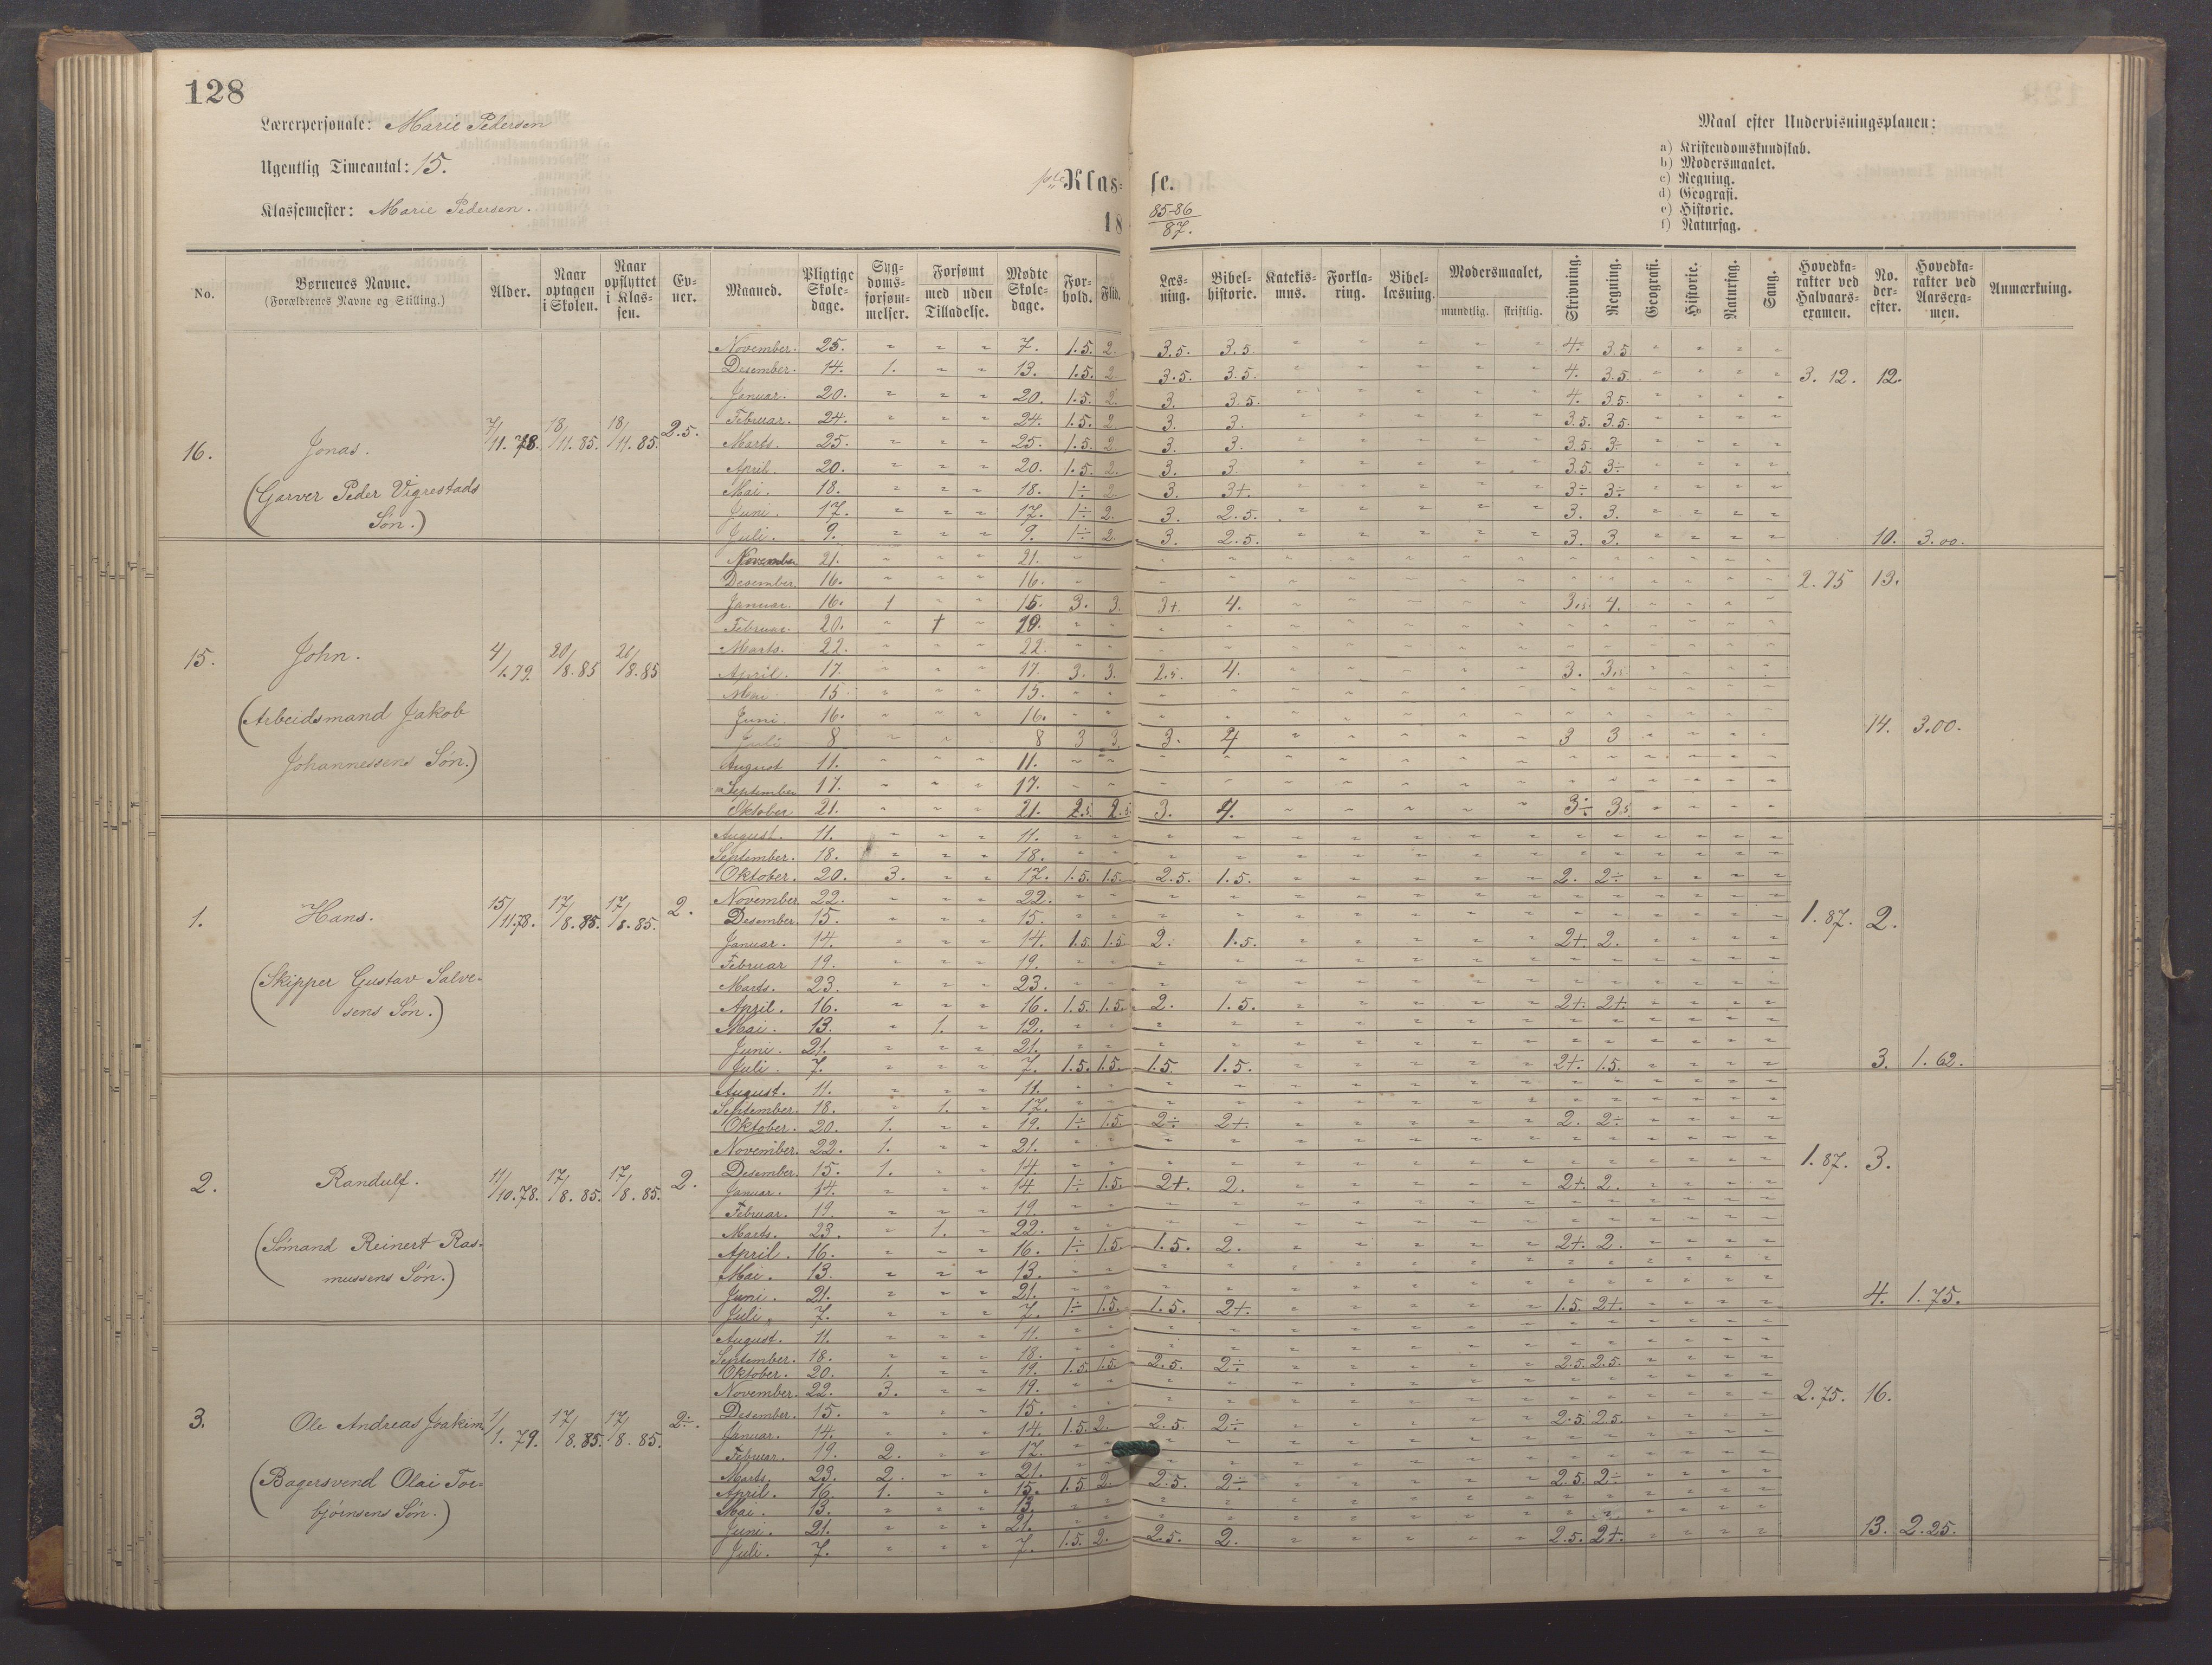 128
Lærerpersonale: Marie Pedersen
Ugentlig Timeantal: 15.
Klassemester: Marie Pedersen.
1ste Klasse.
18 85-86/87.
Maal efter Undervisningsplanen:
a) Kristendomskundskab.
b) Modersmaalet.
c) Regning.
d) Geografi.
e) Historie.
f) Naturfag.
No. Børnenes Navne. (Forældrenes Navne og Stilling.) Alder. Naar optagen i Skolen. Naar opflyttet i Klassen. Evner. Maaned. Pligtige Skoledage. Sygdomsforsømmelser. Forsømt med uden Tilladelse. Mødte Skoledage. Forhold. Flid. Læsning. Bibelhistorie. Katekismus. Forklaring. Bibellæsning. Modersmaalet, mundtlig. skriftlig. Skrivning. Regning. Geografi. Historie. Naturfag. Sang. Hovedkarakter ved Halvaarsexamen. No. derefter. Hovedkarakter ved Aarsexamen. Anmærkning.
16. Jonas. (Garver Peder Vigrestads Søn.) 7/11. 78. 18/11. 85. 18/11. 85. 2.5.
November. 25. " " " 7. 1.5. 2. 3.5. 3.5. " " " " " 4. 3.5 " " " "
Desember. 14. 1. " " 13. 1.5. 2. 3.5. 3.5. " " " " " 4. 3.5. " " " " 3. 12. 12.
Januar. 20. " " " 20. 1.5. 2. 3. 3.5. " " " " " 4. 3.5. " " " "
Februar. 24. " " " 24. 1.5. 2 3. 3. " " " " " 3.5. 3.5. " " " "
Marts. 25. " " " 25. 1.5. 2 3. 3. " " " " " 3.5. 3÷ " " " "
April. 20. " " " 20. 1.5. 2. 3. 3. " " " " " 3.5. 3÷ " " " "
Mai. 18. " " " 18. 1÷ 2. 3. 3+. " " " " " 3÷ 3÷ " " " "
Juni. 17. " " " 17. 1÷ 2. 3. 2.5. " " " " " 3. 3. " " " "
Juli. 9. " " " 9. 1÷ 2. 3. 2.5. " " " " " 3. 3. " " " " 10. 3.00.
15. John. (Arbeidsmand Jakob Johannessens Søn.) 4/1. 79. 20/8. 85 20/8. 85
November 21. " " " 21. "
Desember. 16. " " " 16. " 2.75 13.
Januar. 16. 1 " " 15. 3. 3. 3+. 4. " " " " " 3.5 4. " " " "
Februar. 20. " † " 19. " "
Marts. 22. " " " 22. " "
April. 17 " " " 17. 3. 3. 2.5. 4. " " " " " 3. 3.5 " " "
Mai 15 " " " 15. " "
Juni. 16. " " " 16. " "
Juli 8 " " 8 3 3. 3. 4 " " " " " 3 3 " " " " 14. 3.00.
August 11. " " " 11. " "
September 17. " " " 17. " "
Oktober 21. " " " 21. 2.5 2.5 3. 4. " " " " " 3÷ 3.5. " " " "
1. Hans. (Skipper Gustav Salvesens Søn.) 15/11. 78. 17/8. 85. 17/8. 85. 2.
August. 11. " " " 11. " "
September. 18. " " " 18. " "
Oktober. 20. 3. " " 17. 1.5. 1.5. 2.5. 1.5. " " " " " 2. 2÷ " " " "
November. 22. " " " 22. " "
Desember. 15. " " " 15. " " 1.87. 2.
Januar. 14. " " " 14. 1.5 1.5 2. 1.5. " " " " " 2+. 2. " " " "
Februar 19. " " " 19. " "
Marts. 23. " " " 23. " "
April. 16. " " " 16. 1.5. 1.5. 2. 1.5. " " " " " 2+. 2+. " " " "
Mai. 13. " 1. " 12. " "
Juni. 21. " " " 21. " "
Juli. 7. " " " 7. 1.5. 1.5. 1.5. 1.5. " " " " " 2+. 1.5. " " " " 3. 1.62.
2. Randulf. (Sømand Reinert Rasmussens Søn.) 11/10. 78. 17/8. 85. 17/8. 85. 2.
August. 11. " " " 11. " "
September. 18. " 1. " 17. " "
Oktober. 20. 1. " " 19. 1÷ 1.5. 2÷ 2+. " " " " " 2. 2÷ " " " "
November. 22. 1. " " 21. " "
Desember. 15. 1. " " 14. " " 1.87. 3.
Januar. 14. " " " 14 1÷ 1.5. 2+. 2. " " " " " 2+. 2. " " " "
Februar. 19. " " " 19. " "
Marts. 23. " 1. " 22. " "
April. 16. " " " 16. 1÷ 1.5. 1.5. 2. " " " " " 2+. 2. " " " "
Mai. 13. " " " 13. " "
Juni. 21. " " " 21. " "
Juli. 7. " " " 7. 1÷ 1.5. 1.5. 2+. " " " " " 1.5. 2+. " " " " 4. 1.75.
3. Ole Andreas Joakim. (Bagersvend Olai Torbjørnsens Søn.) 1/1. 79. 17/8. 85. 17/8. 85. 2÷.
August. 11. " " " 11. " "
September. 18. " " " 18. " "
Oktober. 20. 1. " " 19. 1.5. 1.5. 2.5. 2÷ " " " " " 2.5. 2.5. " " " "
November. 22. 3. " " 19. " "
Desember. 15. " " " 15. " " 2.75. 16.
Januar. 14. " " " 14. 1.5. 2. 2.5. 2÷ " " " " " 2.5. 2.5. " " " "
Februar. 19. 2. " " 17. " "
Marts. 23. 2. " " 21. " "
April. 16. 1. " " 15. 1.5 2. 2.5. 2÷ " " " " " 2.5. 2÷ " " " "
Mai. 13. " " " 13. " "
Juni. 21. " " " 21. " "
Juli. 7. " " " 7. 1.5. 2. 2.5. 2. " " " " " 2.5. 2+. " " " " 13. 2.25.